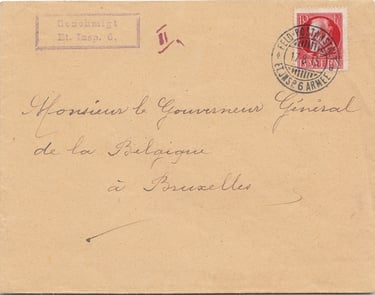 Genehmigt
Et. Insp. 6.
II
10
FELD-
ET. INSP 6 ARMEE
Monsieur le Gouverneur Général
de la Belgique
à Bruxelles